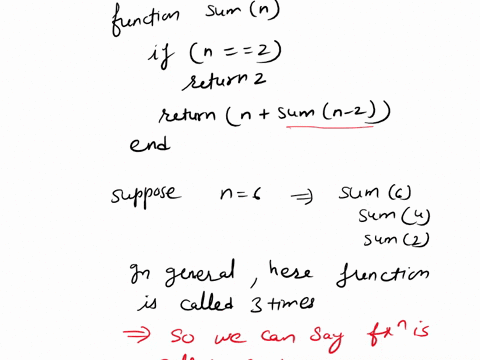 function sum (n)
if (n == 2)
return 2
return (n + sum (n-2))
end
suppose n=6 ⇒ sum (6)
sum (4)
sum (2)
In general, here function
is called 3 times
⇒ so we can say fxⁿ is